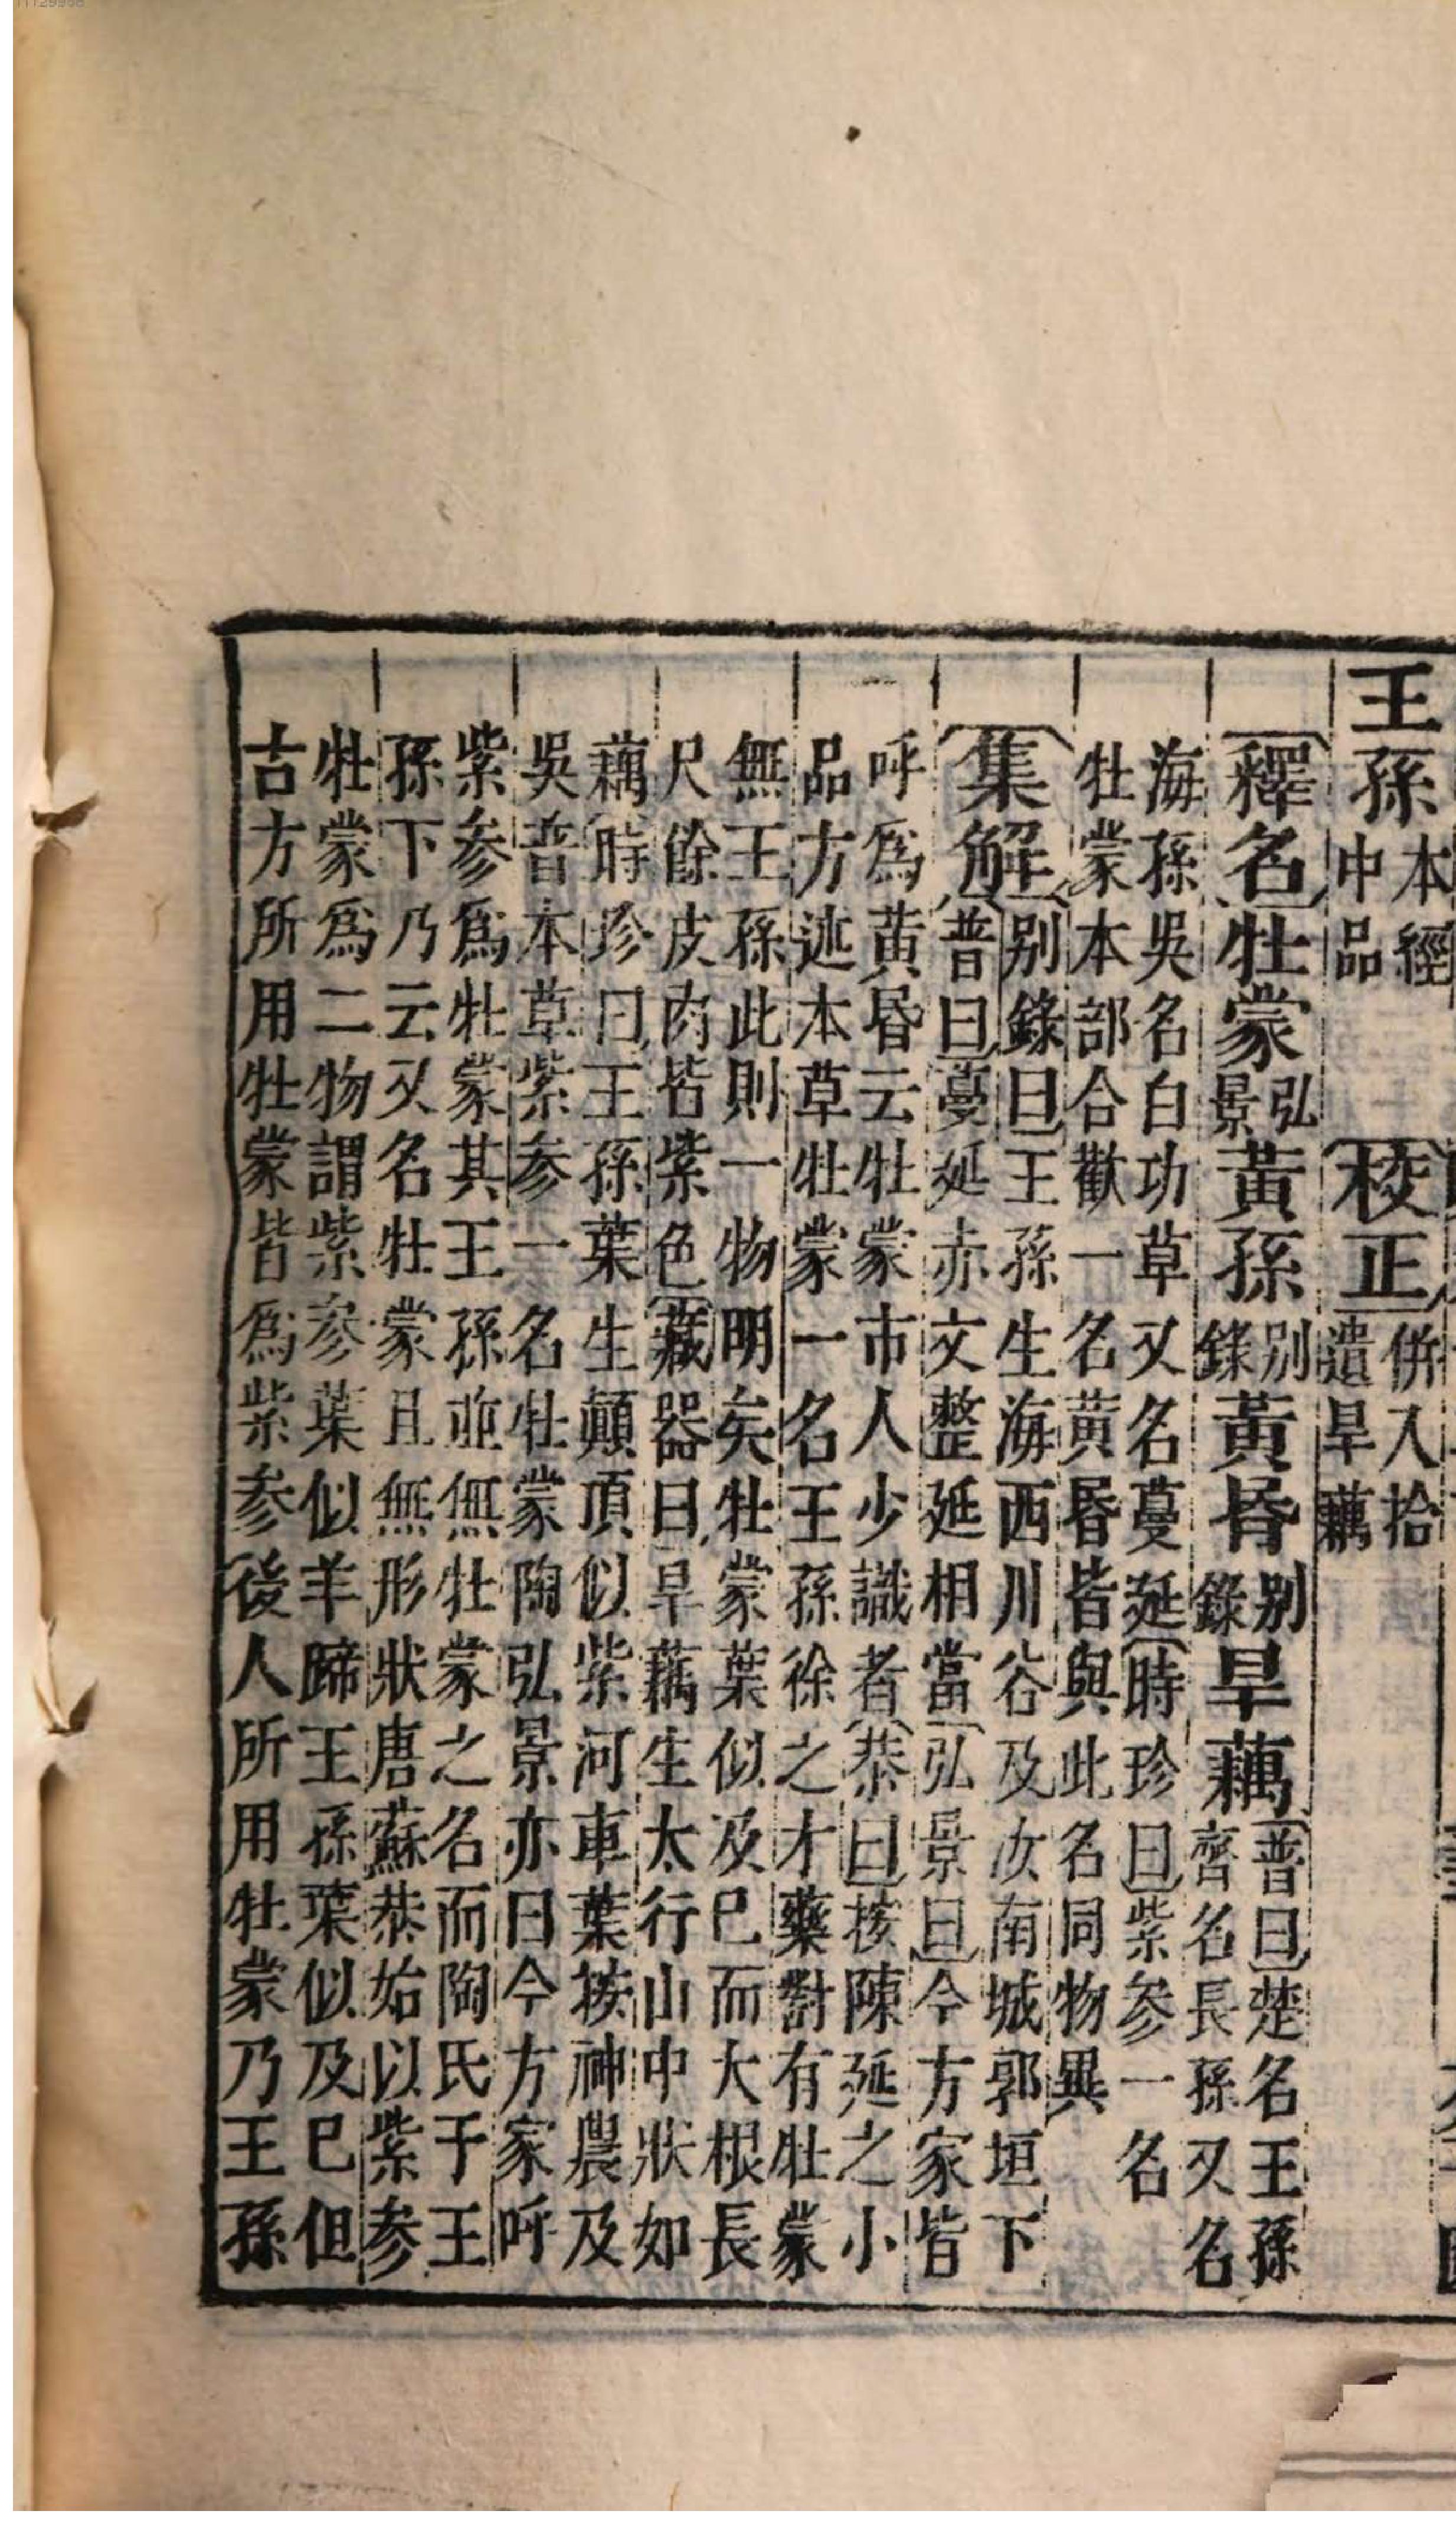 11129958
王孫本經中品〔校正〕併入拾遺旱藕
〔釋名〕牡蒙弘景黃孫別錄黃昏別錄旱藕〔普曰〕楚名王孫
齊名長孫又名
海孫吳名白功草又名蔓延〔時珍曰〕紫参一名
牡蒙本部合歡一名黃昏皆與此名同物異
〔集解〕〔別錄曰〕王孫生海西川谷及汝南城郭垣下
〔普曰〕蔓延赤文整延相當〔弘景曰〕今方家皆
呼爲黃昏云牡蒙市人少識者〔恭曰〕按陳延之小
品方述本草牡蒙一名王孫徐之才藥對有牡蒙
無王孫此則一物明矣牡蒙葉似及巳而大根長
尺餘皮肉皆紫色〔藏器曰〕旱藕生太行山中狀如
藕〔時珍曰〕王孫葉生顛頂似紫河車葉按神農及
吳普本草紫参一名牡蒙陶弘景亦曰今方家呼
紫参爲牡蒙其王孫並無牡蒙之名而陶氏于王
孫下乃云又名牡蒙且無形狀唐蘇恭始以紫参
牡蒙爲二物謂紫参葉似羊蹄王孫葉似及巳但
古方所用牡蒙皆爲紫参後人所用牡蒙乃王孫